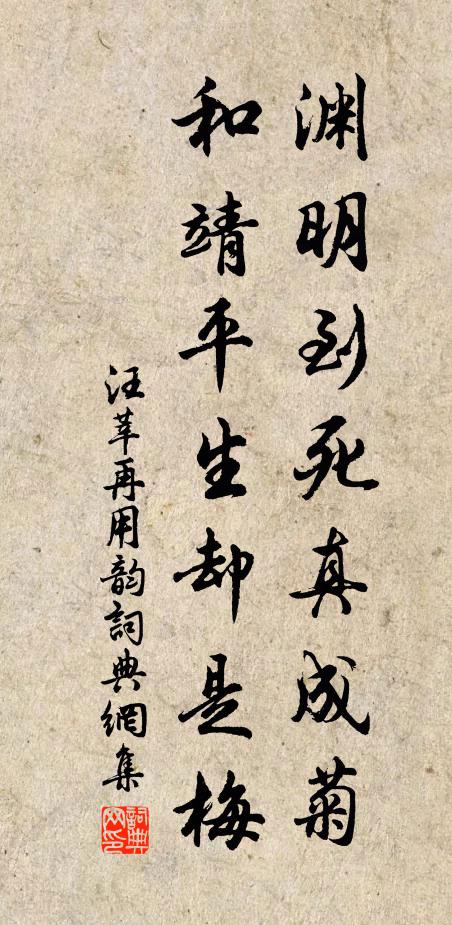 渊明到死真成菊
和靖平生却是梅
汪莘再用韵詞典網集
詞典网印